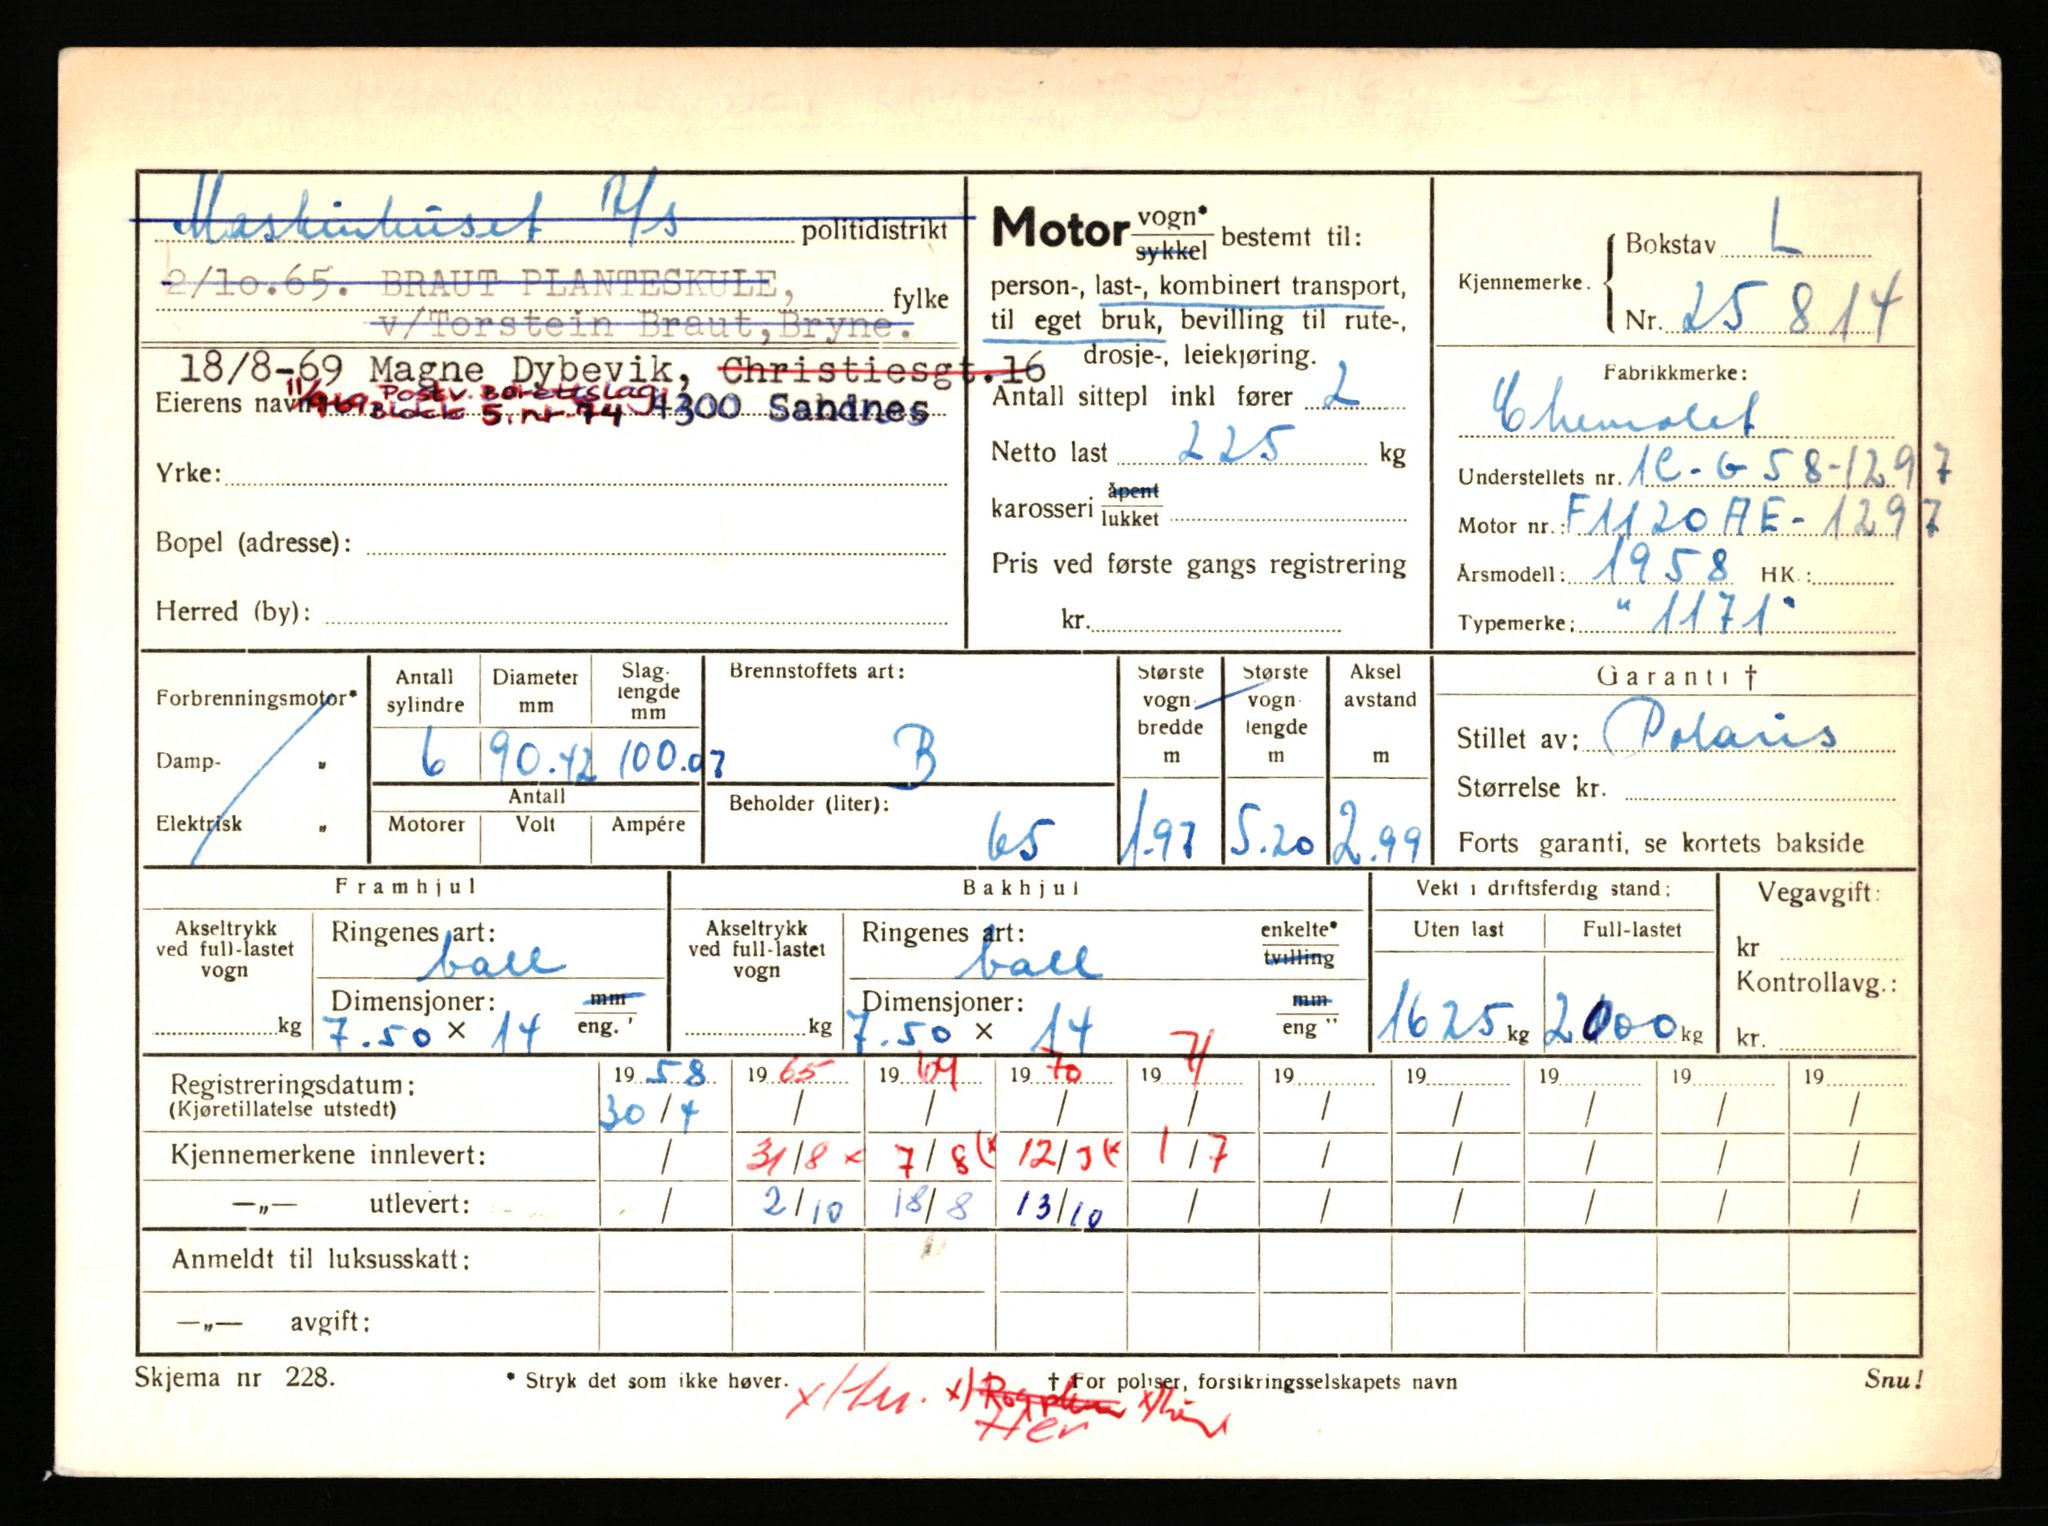 Maskinhuset A/s politidistrikt
2/10.65. BRAUT PLANTESKULE, fylke
v/Torstein Braut, Bryne.
18/8-69 Magne Dybevik, Christiesgt.16
Postv. Borettslag
Eierens navn Block 5. nr 74 4300 Sandnes
Yrke:
Bopel (adresse):
Herred (by):
Motor vogn* sykkel bestemt til:
person-, last-, kombinert transport,
til eget bruk, bevilling til rute-,
drosje-, leiekjøring.
Antall sittepl inkl fører 2
Netto last 225 kg
karosseri åpent lukket
Pris ved første gangs registrering
kr.
Kjennemerke. Bokstav L
Nr. 25814
Fabrikkmerke:
Chevrolet
Understellets nr. 1C-G58-1297
Motor nr.: F1120AE-1297
Årsmodell: 1958 HK.:
Typemerke: "1171"
Forbrenningsmotor*
Damp- „
Elektrisk „
Antall sylindre 6
Diameter mm 90.42
Slag- lengde mm 100.07
Antall
Motorer Volt Ampére
Brennstoffets art:
B
Beholder (liter):
65
Største vogn- bredde m 1.97
Største vogn- lengde m 5.20
Aksel avstand m 2.99
Garanti †
Stillet av: Polaris
Størrelse kr.
Forts garanti, se kortets bakside
Framhjul
Akseltrykk ved full-lastet vogn kg
Ringenes art:
ball
Dimensjoner: mm eng. '
7.50 × 14
Bakhjul
Akseltrykk ved full-lastet vogn kg
Ringenes art: enkelte* tvilling
ball
Dimensjoner: mm eng "
7.50 × 14
Vekt i driftsferdig stand:
Uten last Full-lastet
1625 kg 2000 kg
Vegavgift:
kr
Kontrollavg.:
kr.
Registreringsdatum: 19 58 19 65 19 69 19 70 19 71 19 19 19 19 19
(Kjøretillatelse utstedt) 30/4 / / / / / / / / /
Kjennemerkene innlevert: / 31/8 x 7/8 (x 12/3 (x 1/7 / / / / /
—„— utlevert: / 2/10 18/8 13/10 / / / / / /
Anmeldt til luksusskatt:
—„— avgift:
Skjema nr 228.
* Stryk det som ikke høver.
† For poliser, forsikringsselskapets navn
Snu!
Her